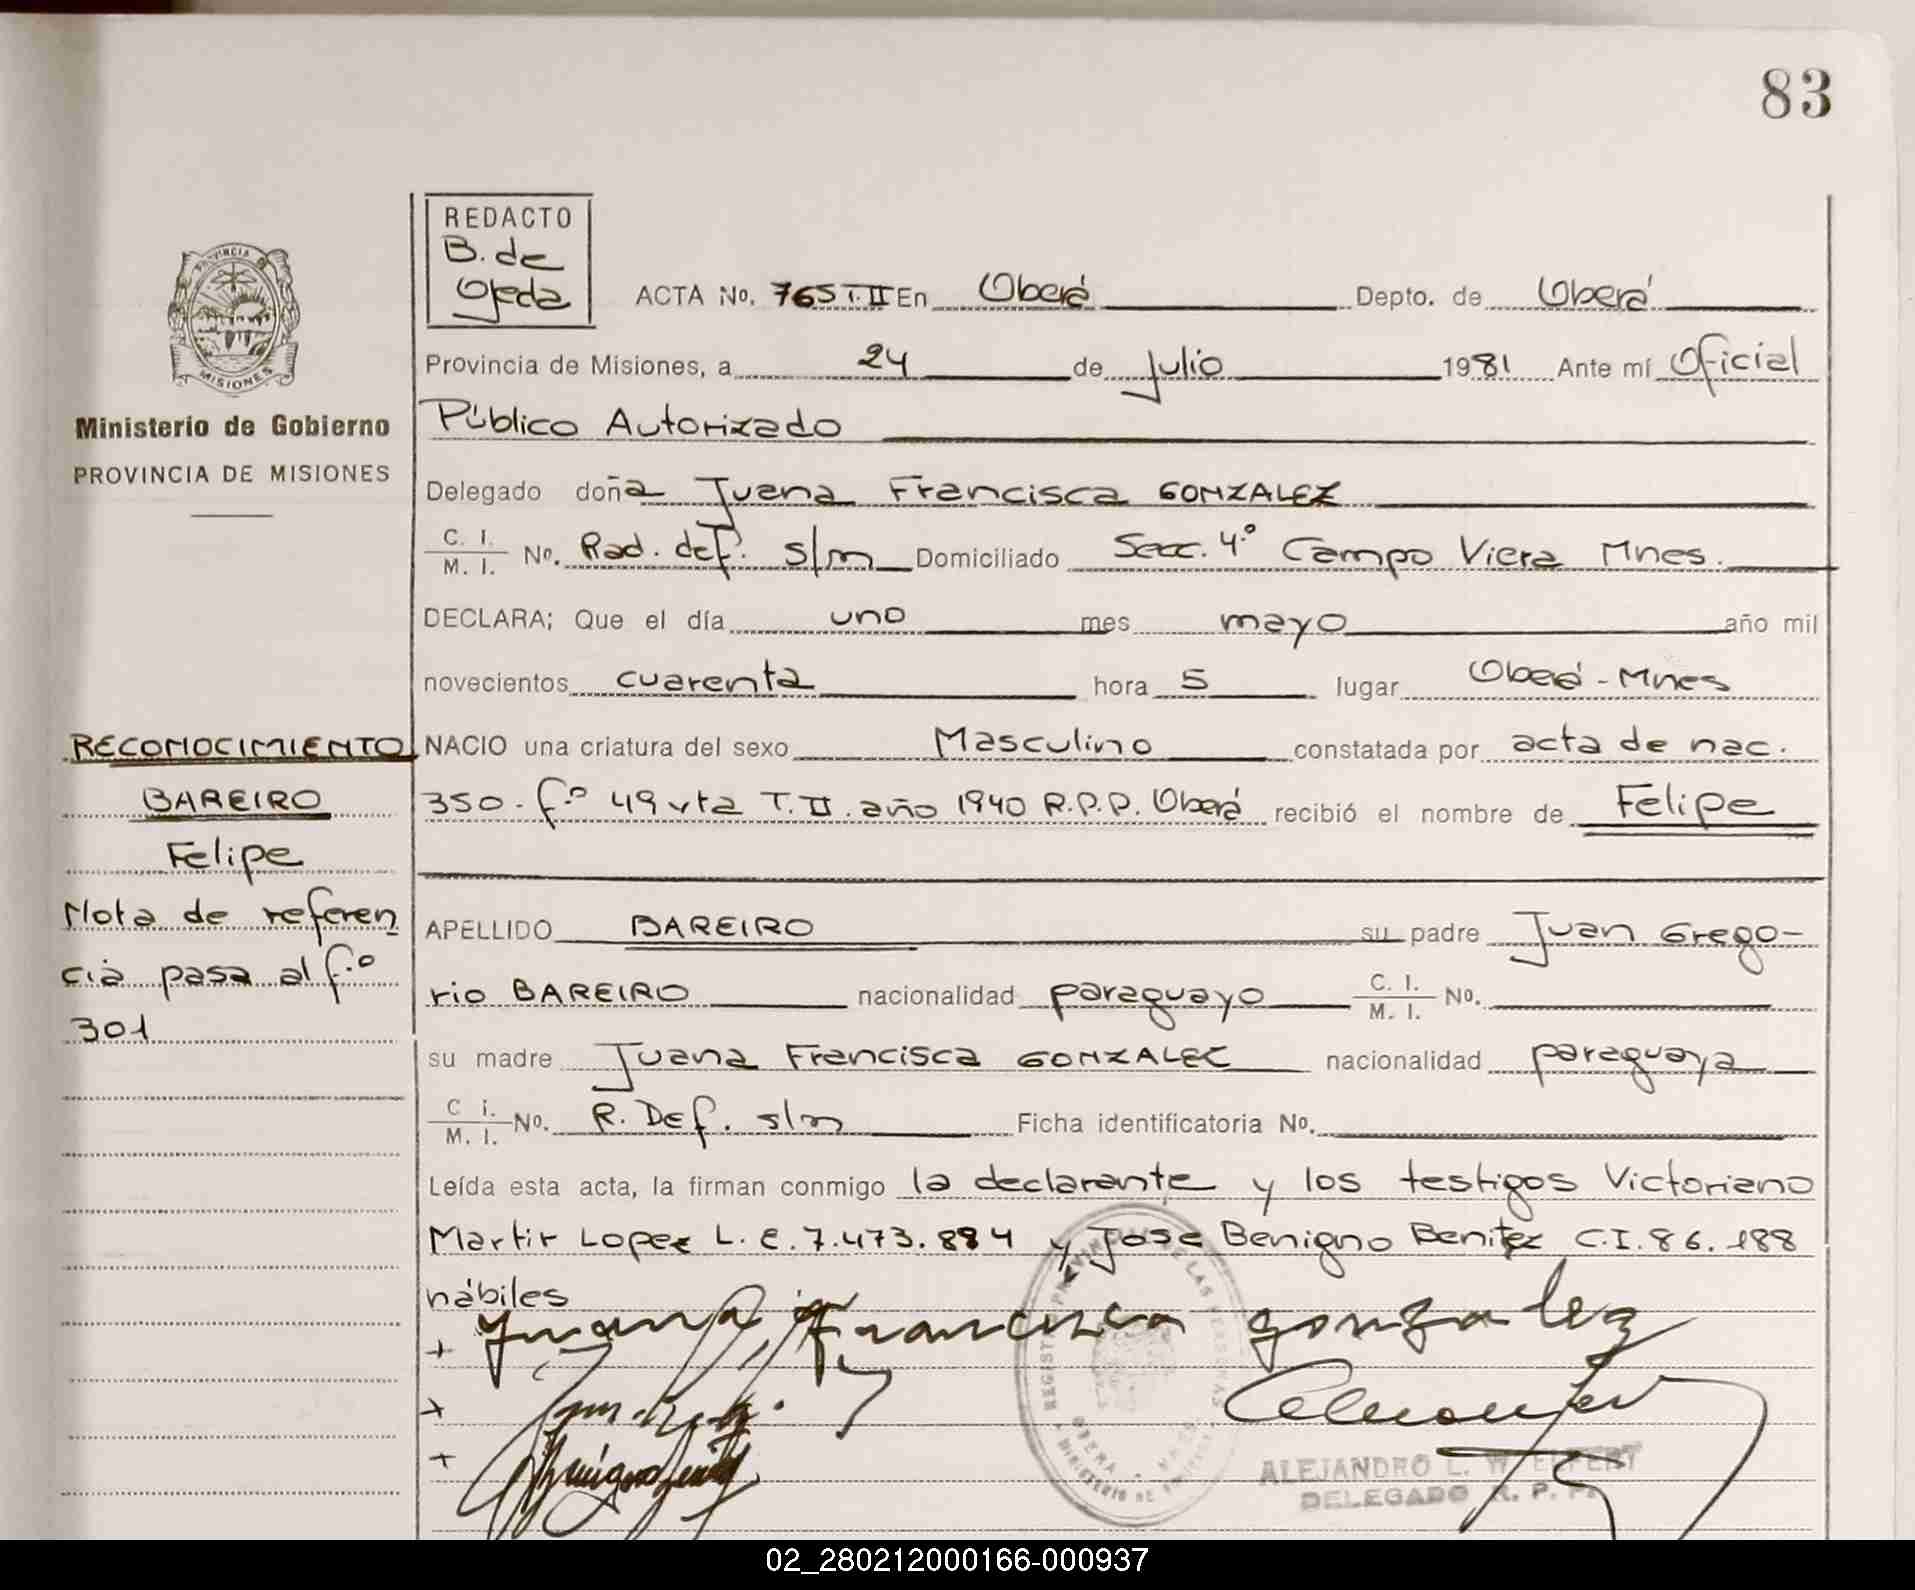 83
REDACTO
B. de
Ojeda
ACTA No. 765 T. II En Oberá Depto. de Oberá
PROVINCIA DE
MISIONES
Provincia de Misiones, a 24 de Julio 1981 Ante mí Oficial
Ministerio de Gobierno
Público Autorizado
PROVINCIA DE MISIONES
Delegado doña Juana Francisca GONZALEZ
C. I.
M. I. No. Rad. def. s/m Domiciliado Secc. 4º Campo Viera Mnes.
DECLARA; Que el día uno mes mayo año mil
novecientos cuarenta hora 5 lugar Oberá - Mnes
RECONOCIMIENTO
NACIO una criatura del sexo Masculino constatada por acta de nac.
BAREIRO
350. fº 49 vta T. II. año 1940 R.P.P. Oberá recibió el nombre de Felipe
Felipe
Nota de referen
APELLIDO BAREIRO su padre Juan Grego-
cia pasa al f.º
rio BAREIRO nacionalidad paraguayo C. I.
M. I. No.
301
su madre Juana Francisca GONZALEZ nacionalidad paraguaya
C i.
M. I. No. R. Def. s/m Ficha identificatoria No.
Leída esta acta, la firman conmigo la declarante y los testigos Victoriano
Martir Lopez L. E. 7.473.884 y Jose Benigno Benitez C.I. 86.188
hábiles
+ Juana Francisca gonzalez
+
+
ALEJANDRO L.
DELEGADO R. P. P.
02_280212000166-000937